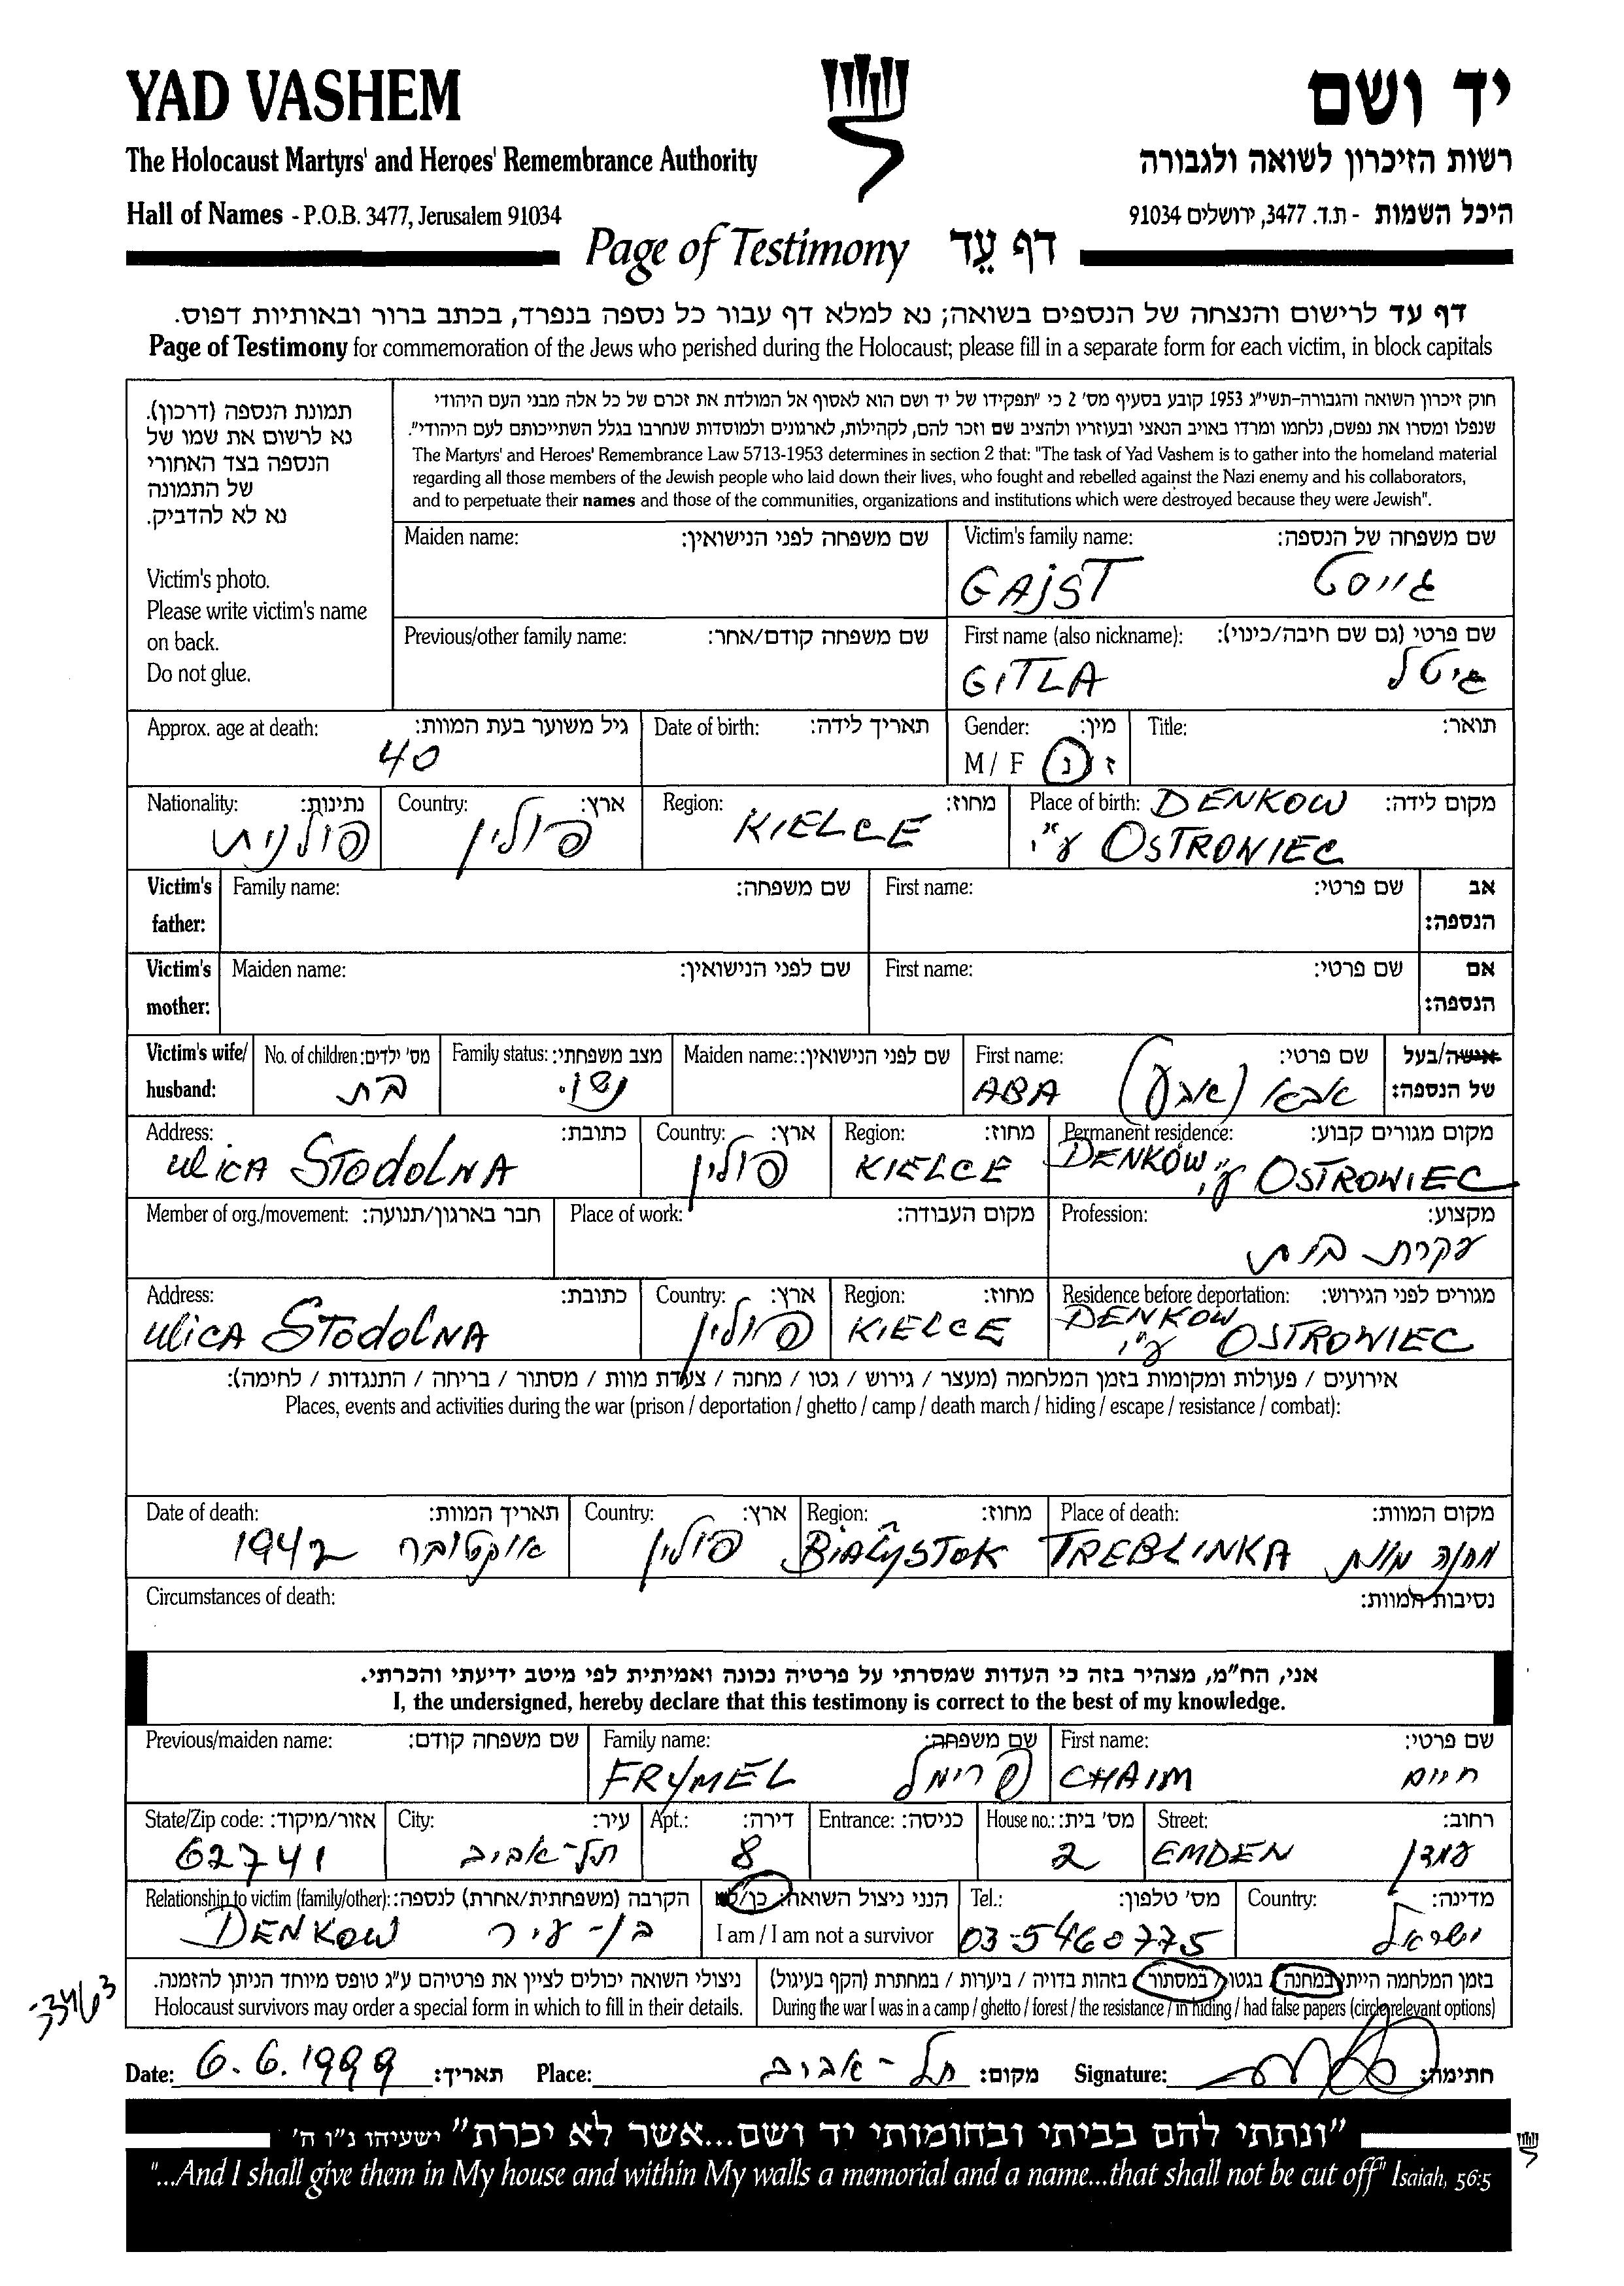 YAD VASHEM
יד ושם
The Holocaust Martyrs' and Heroes' Remembrance Authority
רשות הזיכרון לשואה ולגבורה
Hall of Names - P.O.B. 3477, Jerusalem 91034
היכל השמות - ת.ד. 3477, ירושלים 91034
Page of Testimony דף עֵד
דף עד לרישום והנצחה של הנספים בשואה; נא למלא דף עבור כל נספה בנפרד, בכתב ברור ובאותיות דפוס.
Page of Testimony for commemoration of the Jews who perished during the Holocaust; please fill in a separate form for each victim, in block capitals
תמונת הנספה (דרכון).
נא לרשום את שמו של
הנספה בצד האחורי
של התמונה
נא לא להדביק.
Victim's photo.
Please write victim's name
on back.
Do not glue.
חוק זיכרון השואה והגבורה-תשי"ג 1953 קובע בסעיף מס' 2 כי "תפקידו של יד ושם הוא לאסוף אל המולדת את זכרם של כל אלה מבני העם היהודי
שנפלו ומסרו את נפשם, נלחמו ומרדו באויב הנאצי ובעוזריו ולהציב שם וזכר להם, לקהילות, לארגונים ולמוסדות שנחרבו בגלל השתייכותם לעם היהודי".
The Martyrs' and Heroes' Remembrance Law 5713-1953 determines in section 2 that: "The task of Yad Vashem is to gather into the homeland material
regarding all those members of the Jewish people who laid down their lives, who fought and rebelled against the Nazi enemy and his collaborators,
and to perpetuate their names and those of the communities, organizations and institutions which were destroyed because they were Jewish".
Maiden name: שם משפחה לפני הנישואין:
Victim's family name: שם משפחה של הנספה:
GAJST גייסט
Previous/other family name: שם משפחה קודם/אחר:
First name (also nickname): שם פרטי (גם שם חיבה/כינוי):
GITLA גיטל
Approx. age at death: גיל משוער בעת המוות:
40
Date of birth: תאריך לידה:
Gender: מין:
M / F ז נ
Title: תואר:
Nationality: נתינות:
פולנית
Country: ארץ:
פולין
Region: מחוז:
KIELCE
Place of birth: מקום לידה:
DENKOW
ע"י OSTROWIEC
Victim's father: Family name: שם משפחה: First name: שם פרטי: אב הנספה:
Victim's mother: Maiden name: שם לפני הנישואין: First name: שם פרטי: אם הנספה:
Victim's wife/ husband:
No. of children: מס' ילדים:
בת
Family status: מצב משפחתי:
נשוי
Maiden name: שם לפני הנישואין:
First name: שם פרטי:
ABA אבא (אבע)
אישה/בעל של הנספה:
Address: כתובת:
ULICA STODOLNA
Country: ארץ:
פולין
Region: מחוז:
KIELCE
Permanent residence: מקום מגורים קבוע:
DENKOW ע"י OSTROWIEC
Member of org./movement: חבר בארגון/תנועה:
Place of work: מקום העבודה:
Profession: מקצוע:
עקרת בית
Address: כתובת:
ULICA STODOLNA
Country: ארץ:
פולין
Region: מחוז:
KIELCE
Residence before deportation: מגורים לפני הגירוש:
DENKOW
ע"י OSTROWIEC
אירועים / פעולות ומקומות בזמן המלחמה (מעצר / גירוש / גטו / מחנה / צעדת מוות / מסתור / בריחה / התנגדות / לחימה):
Places, events and activities during the war (prison / deportation / ghetto / camp / death march / hiding / escape / resistance / combat):
Date of death: תאריך המוות:
אוקטובר 1942
Country: ארץ:
פולין
Region: מחוז:
BIAŁYSTOK
Place of death: מקום המוות:
TREBLINKA מחנה מוות
Circumstances of death: נסיבות המוות:
אני, הח"מ, מצהיר בזה כי העדות שמסרתי על פרטיה נכונה ואמיתית לפי מיטב ידיעתי והכרתי.
I, the undersigned, hereby declare that this testimony is correct to the best of my knowledge.
Previous/maiden name: שם משפחה קודם:
Family name: שם משפחה:
FRYMEL פרימל
First name: שם פרטי:
CHAIM חיים
State/Zip code: אזור/מיקוד:
62741
City: עיר:
תל-אביב
Apt.: דירה:
8
Entrance: כניסה:
House no.: מס' בית:
2
Street: רחוב:
EMDEN עמדן
Relationship to victim (family/other): הקרבה (משפחתית/אחרת) לנספה:
DENKOW בן-עיר
הנני ניצול השואה: כן/לא
I am / I am not a survivor
Tel.: מס' טלפון:
03-5460775
Country: מדינה:
ישראל
ניצולי השואה יכולים לציין את פרטיהם ע"ג טופס מיוחד הניתן להזמנה.
Holocaust survivors may order a special form in which to fill in their details.
בזמן המלחמה הייתי במחנה / בגטו / במסתור / בזהות בדויה / ביערות / במחתרת (הקף בעיגול)
During the war I was in a camp / ghetto / forest / the resistance / in hiding / had false papers (circle relevant options)
-3463
Date: 6.6.1999 תאריך: Place: תל-אביב מקום: Signature: חתימה:
"ונתתי להם בביתי ובחומותי יד ושם...אשר לא יכרת" ישעיהו נ"ו ה'
"...And I shall give them in My house and within My walls a memorial and a name...that shall not be cut off" Isaiah, 56:5